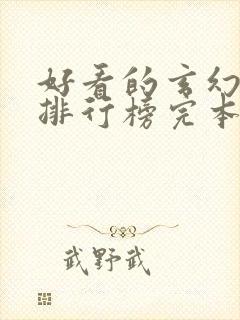 好看的玄幻
排行榜完本
武野武